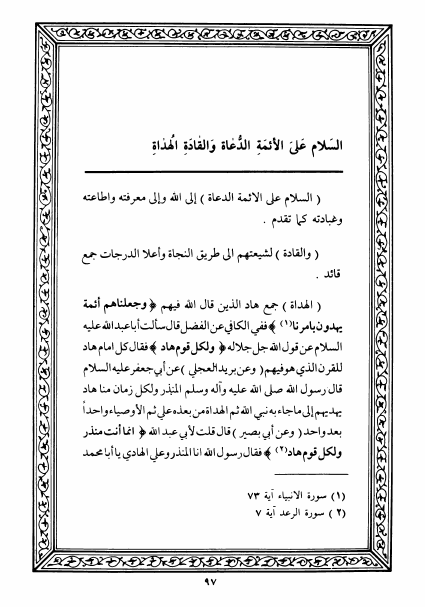 السَلام عَلىَ الأئمَةِ الدُّعاة وَالقادَةِ الهُداةِ
( السلام على الائمة الدعاة ) إلى الله وإلى معرفته واطاعته
وعبادته كما تقدم .
( والقادة ) لشيعتهم الى طريق النجاة وأعلا الدرجات جمع
قائد .
( الهداة ) جمع هاد الذين قال الله فيهم ﴿ وجعلناهم أئمة
يهدون بامرنا (١) ﴾ ففي الكافي عن الفضل قال سألت أبا عبدالله عليه
السلام عن قول الله جل جلاله ﴿ ولكل قوم هاد ﴾ فقال كل امام هاد
للقرن الذي هو فيهم ( وعن بريد العجلي ) عن أبي جعفر عليه السلام
قال رسول الله صلى الله عليه وآله وسلم المنذر ولكل زمان منا هاد
يهديهم إلى ما جاء به نبي الله ثم الهداة من بعده علي ثم الأوصياء واحداً
بعد واحد ( وعن أبي بصير ) قال قلت لأبي عبد الله ﴿ انما أنت منذر
ولكل قوم هاد (٢) ﴾ فقال رسول الله انا المنذر وعلي الهادي يا أبا محمد
(١) سورة الانبياء آية ٧٣
(٢) سورة الرعد آية ٧
٩٧